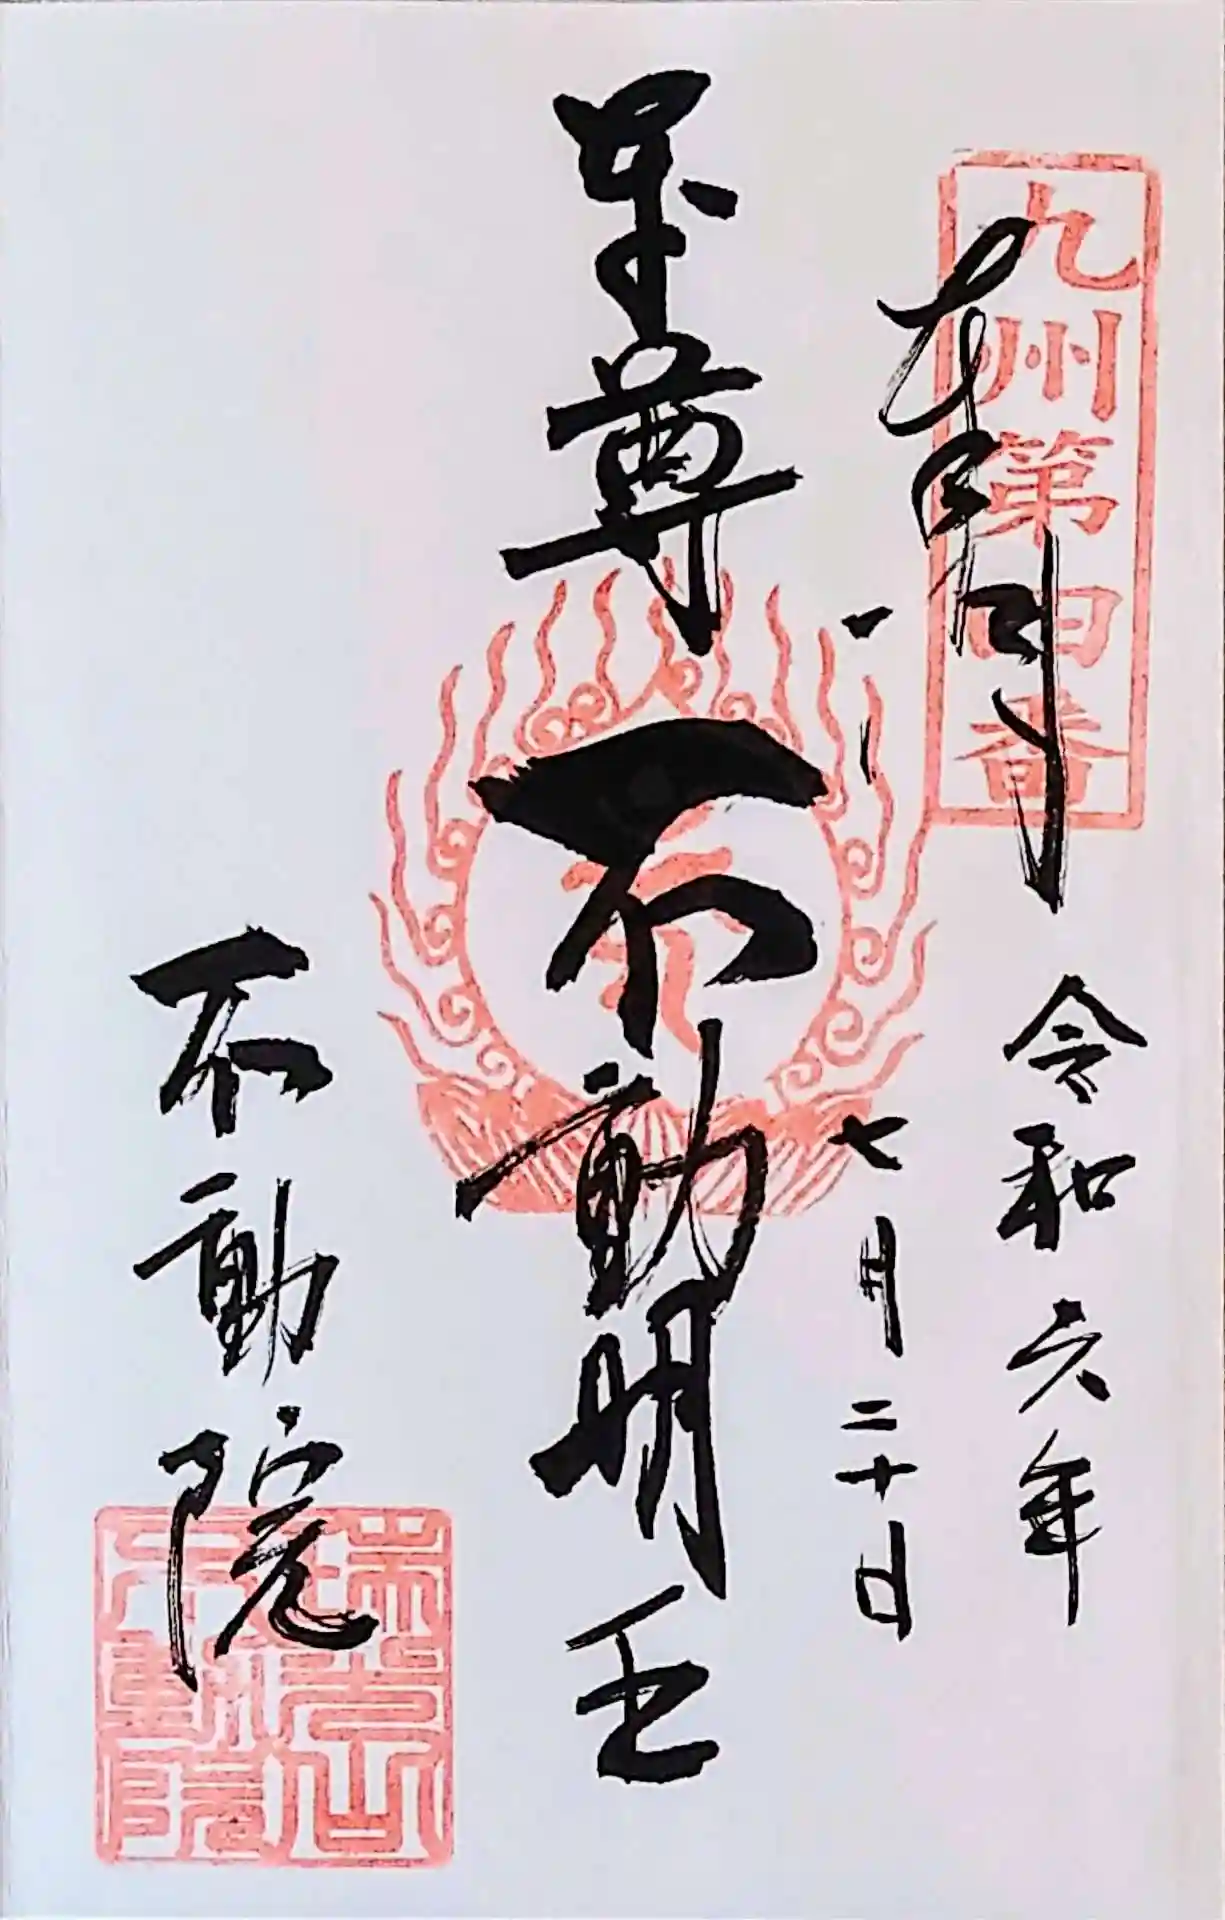 九州第四番
奉拝
令和六年
七月二十日
本尊
不動明王
不動院
瑞光山
不動院